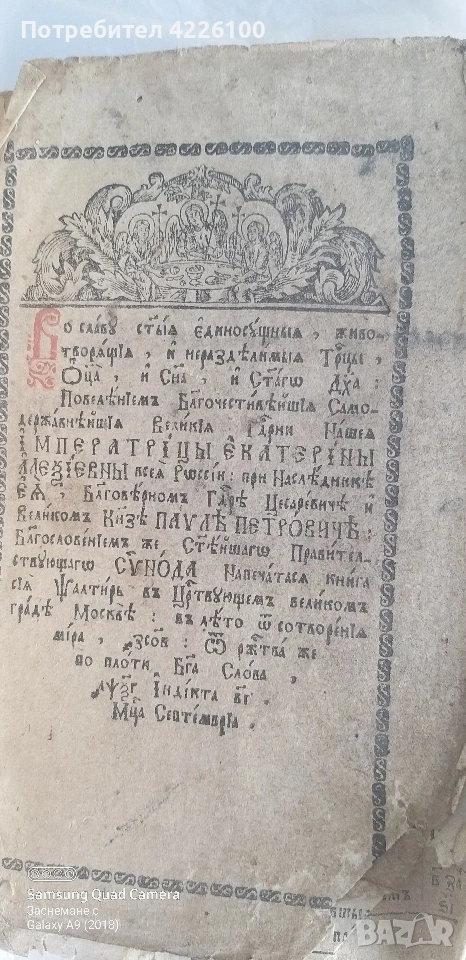 Потребител 4226100
Во славу ст҃ыѧ є҆диносꙋщныѧ, живо-
творѧщїѧ, и҆ нераздѣлимыѧ Трⷪ҇цы,
Ѻ҆ц҃а̀, и҆ Сн҃а, и҆ Ст҃а́гѡ Дх҃а:
Повелѣнїемъ Благочестивѣйшїѧ Само-
державнѣйшїѧ Великїѧ Гдⷭ҇рни Нашеѧ
І҆МПЕРАТРІЦЫ Є҆КАТЕРІНЫ
АЛЕѮІЕВНЫ всеѧ Рѡссїи: при Наслѣдникѣ
Є҆Ѧ̀, Бл҃говѣрномъ Гдⷭ҇рѣ Цесаревичѣ и҆
Великомъ Кнѧ҃зѣ ПАѴЛѢ ПЕТРОВИЧѢ:
Бл҃гословенїемъ же Ст҃ѣйшагѡ Правител-
ствующагѡ СѴНОДА Напечатасѧ книга
сїѧ Ѱалтирь въ Црⷭ҇твующемъ великомъ
градѣ Москвѣ: въ лѣто ѿ сотворенїѧ
мїра, ҂зсов: Ѿ ржⷭ҇тва же
по плоти Бг҃а Слова,
҂аѱѯг І҆ндікта вг҃,
Мцⷭ҇а Септемврїа.
Samsung Quad Camera
Заснемане с
Galaxy A9 (2018)
BAZAR